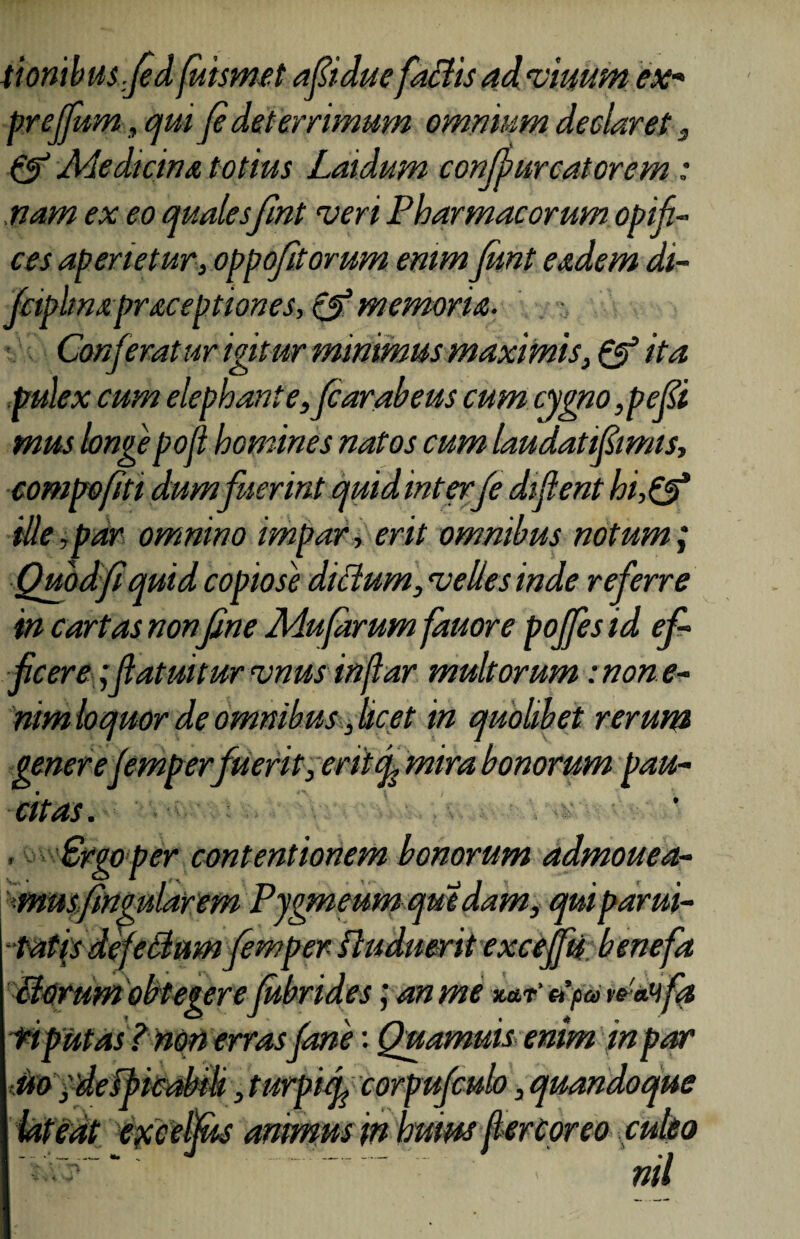 tionibus, ſed ſuismet aſsidue factis ad viuum ex-
preſſum, qui ſe deterrimum omnium declaret,
& Medicinæ totius Laidum conſpurcatorem:
nam ex eo quales ſint veri Pharmacorum opifi-
ces aperietur, oppoſitorum enim ſunt eædem di-
ſciplinæ præceptiones, & memoria.
Conferatur igitur minimus maximis, & ita
pulex cum elephante, ſcarabeus cum cygno, peſsi
mus longè poſt homines natos cum laudatiſsimis,
compoſiti dum fuerint quid inter ſe diſtent hi, &
ille, par omnino impar, erit omnibus notum;
Quòd ſi quid copiosè dictum, velles inde referre
in cartas non ſine Muſarum fauore poſſes id ef-
ficere; ſtatuitur vnus inſtar multorum: non e-
nim loquor de omnibus, licet in quolibet rerum
genere ſemper fuerit, eritq; mira bonorum pau-
citas.
Ergo per contentionem bonorum admouea-
mus ſingularem Pygmeum quēdam, qui parui-
tatis defectum ſemper ſtuduerit exceſſu benefa
ctorum obtegere ſubrides; an me κατ' ſa
ri putas? non erras ſanè: Quamuis enim in par
uo, deſpicabili, turpiq; corpuſculo, quandoque
lateat excelſus animus in huius ſtercoreo culeo
nil